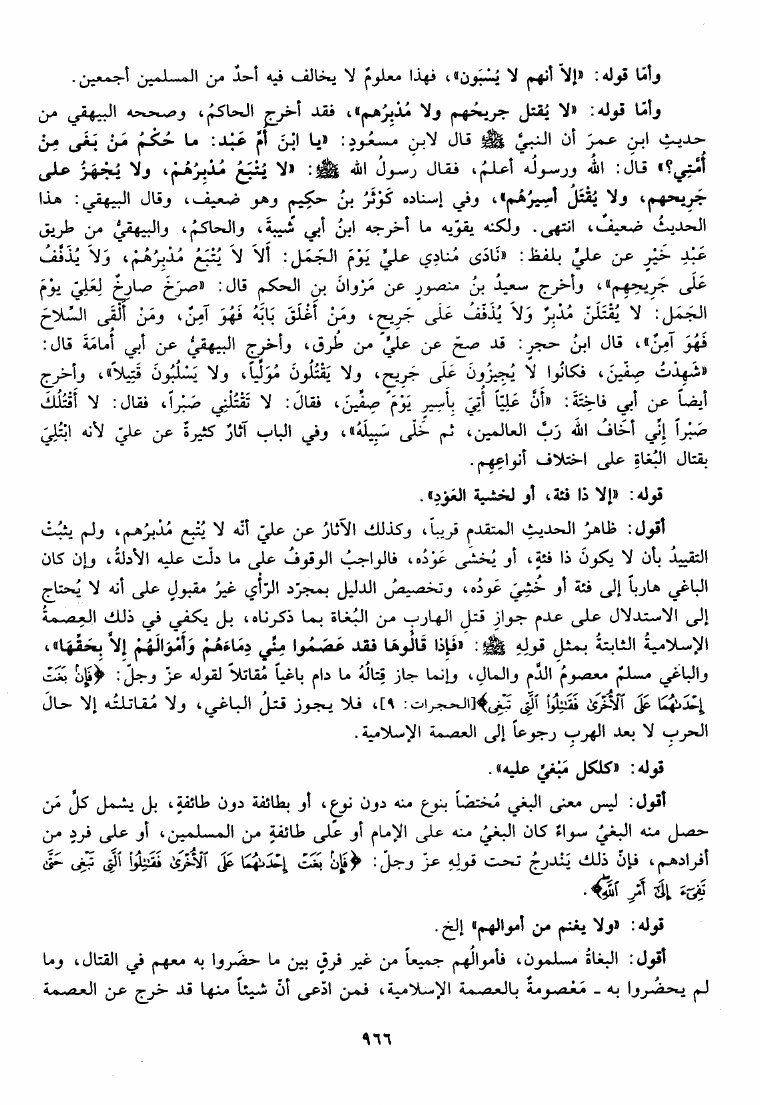 وأمّا قوله: «إلاّ أنهم لا يُسْبَون»، فهذا معلومٌ لا يخالف فيه أحدٌ من المسلمين أجمعين.
وأمّا قوله: «لا يُقتل جريحُهم ولا مُدْبِرُهم»، فقد أخرج الحاكمُ، وصححه البيهقي من
حديثِ ابنِ عمرَ أن النبيَّ ﷺ قال لابنِ مسعُودٍ: «يا ابْنَ أُمِّ عَبْد: ما حُكْمُ مَنْ بَغَى مِنْ
أُمَّتِي؟» قال: اللهُ ورسولُه أعلمُ، فقال رسولُ الله ﷺ: «لا يُتْبَعُ مُدْبِرُهُمْ، ولا يُجْهَزُ على
جَرِيحهم، ولا يُقْتَلُ أسِيرُهُم»، وفي إسناده كَوْثَرُ بنُ حكِيم وهو ضعيف، وقال البيهقي: هذا
الحديثُ ضعيفٌ، انتهى. ولكنه يقوّيه ما أخرجه ابنُ أبي شَيبةَ، والحاكمُ، والبيهقيُّ من طريق
عَبْدِ خَيْرٍ عن عليٍّ بلفظ: «نَادَى مُنادِي عليٍّ يَوْمَ الجَمَل: أَلاَ لاَ يُتْبَعُ مُدْبِرُهُمْ، وَلاَ يُذَفَّفُ
عَلَى جَرِيحِهِم»، وأخرج سعيدُ بنُ منصورٍ عن مَرْوانَ بنِ الحكمِ قال: «صرَخَ صارِخٌ لِعَلِيٍّ يومَ
الجَمَل: لا يُقْتَلَنّ مُدْبِرٌ وَلاَ يُذَفّفُ على جَرِيحٍ، ومَنْ أغْلَقَ بَابَهُ فَهُوَ آمِنٌ، ومَنْ أَلْقَى السِّلاَحَ
فَهُوَ آمِنٌ»، قال ابنُ حجرٍ: قد صحَ عن عليٍّ من طُرق، وأخرج البيهقيُّ عن أبي أُمامَةَ قال:
«شَهِدْتُ صِفّينَ، فكانُوا لا يُجِيزُونَ عَلَى جَرِيحٍ، ولا يَقْتُلُونَ مُوَلِّياً، ولا يَسْلُبُونَ قَتِيلاً»، وأخرج
أيضاً عن أبي فاخِتَةَ: «أنَّ عَلِيّاً أُتِيَ بِأسِيرٍ يَوْمَ صِفّينَ، فقالَ: لا تَقْتُلْنِي صَبْراً، فقال: لا أقْتُلُكَ
صَبْراً إنّي أخافُ الله رَبَّ العالمين، ثم خَلّى سَبِيلَهُ»، وفي الباب آثارٌ كثيرةٌ عن عليّ لأنه ابْتُلِيَ
بقتال البُغاةِ على اختلاف أنواعِهِم.
قوله: «إلا ذا فئة، أو لخشية العَوْدِ».
أقول: ظاهرُ الحديثِ المتقدمِ قريباً، وكذلك الآثارُ عن عليّ أنّه لا يُتْبع مُدْبرُهم، ولم يثبُتْ
التقييدُ بأن لا يكونَ ذا فئةٍ، أو يُخشَى عَوْدُه، فالواجبُ الوقوفُ على ما دلّت عليه الأدلةُ، وإن كان
الباغي هارباً إلى فئة أو خُشِيَ عَودُه، وتخصيصُ الدليل بمجرّد الرّأي غيرُ مقبولٍ على أنه لا يُحتاج
إلى الاستدلال على عدم جوازِ قتلِ الهاربِ من البُغاة بما ذكرناه، بل يكفي في ذلك العِصمةُ
الإسلاميةُ الثابتةُ بمثلِ قولِهِ ﷺ: «فَإذا قَالُوهَا فقد عَصَمُوا مِنّي دِمَاءَهُمْ وَأَمْوَالَهُمْ إلاَّ بِحَقّهَا»،
والباغي مسلمٌ معصومُ الدَّمِ والمالِ، وإنما جاز قِتالُهُ ما دام باغياً مُقاتلاً لقوله عزّ وجلّ: ﴿فَإِنۢ بَغَتْ
إِحْدَىٰهُمَا عَلَى ٱلْأُخْرَىٰ فَقَٰتِلُوا۟ ٱلَّتِى تَبْغِى﴾[الحجرات: ٩]، فلا يجوز قتلُ الباغي، ولا مُقاتلتُه إلا حالَ
الحربِ لا بعد الهربِ رجوعاً إلى العصمة الإسلامية.
قوله: «كلكل مَبْغيّ عليه».
أقول: ليس معنى البغي مُختصّاً بنوع منه دون نوعٍ، أو بطائفة دون طائفةٍ، بل يشمل كلَّ مَن
حصل منه البغيُ سواءٌ كان البغيُ منه على الإمام أو على طائفةٍ من المسلمين، أو على فردٍ من
أفرادهم، فإنّ ذلك يَنْدرجُ تحت قولِهِ عزّ وجلّ: ﴿فَإِنۢ بَغَتْ إِحْدَىٰهُمَا عَلَى ٱلْأُخْرَىٰ فَقَٰتِلُوا۟ ٱلَّتِى تَبْغِى حَتَّىٰ
تَفِىٓءَ إِلَىٰٓ أَمْرِ ٱللَّهِ﴾.
قوله: «ولا يغنم من أموالهم» إلخ.
أقول: البغاةُ مسلمون، فأموالُهم جميعاً من غير فرقٍ بين ما حضَروا به معهم في القتال، وما
لم يحضُروا به ـ مَعْصومةٌ بالعصمة الإسلامية، فمن ادّعى أنّ شيئاً منها قد خرج عن العصمة
٩٦٦